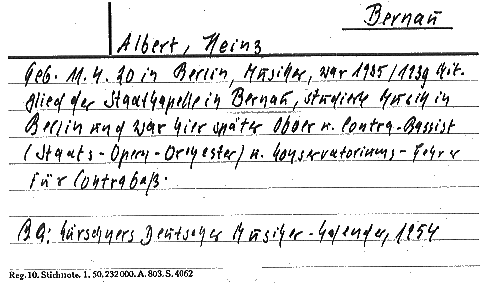 Bernau
Albert, Heinz
Geb. 11.4.20 in Berlin, Musiker, war 1935/1939 Mit-
glied der Stadtkapelle in Bernau, studierte Musik in
Berlin und war hier später Oboer u. Contra-Bassist
(Staats-Opern-Orchester) u. Konservatoriums-Lehrer
für Contrabaß.
BA: Kürschners Deutscher Musiker-Kalender, 1954
Reg. 10. Stichnote. 1. 50. 232000. A. 803. S. 4062